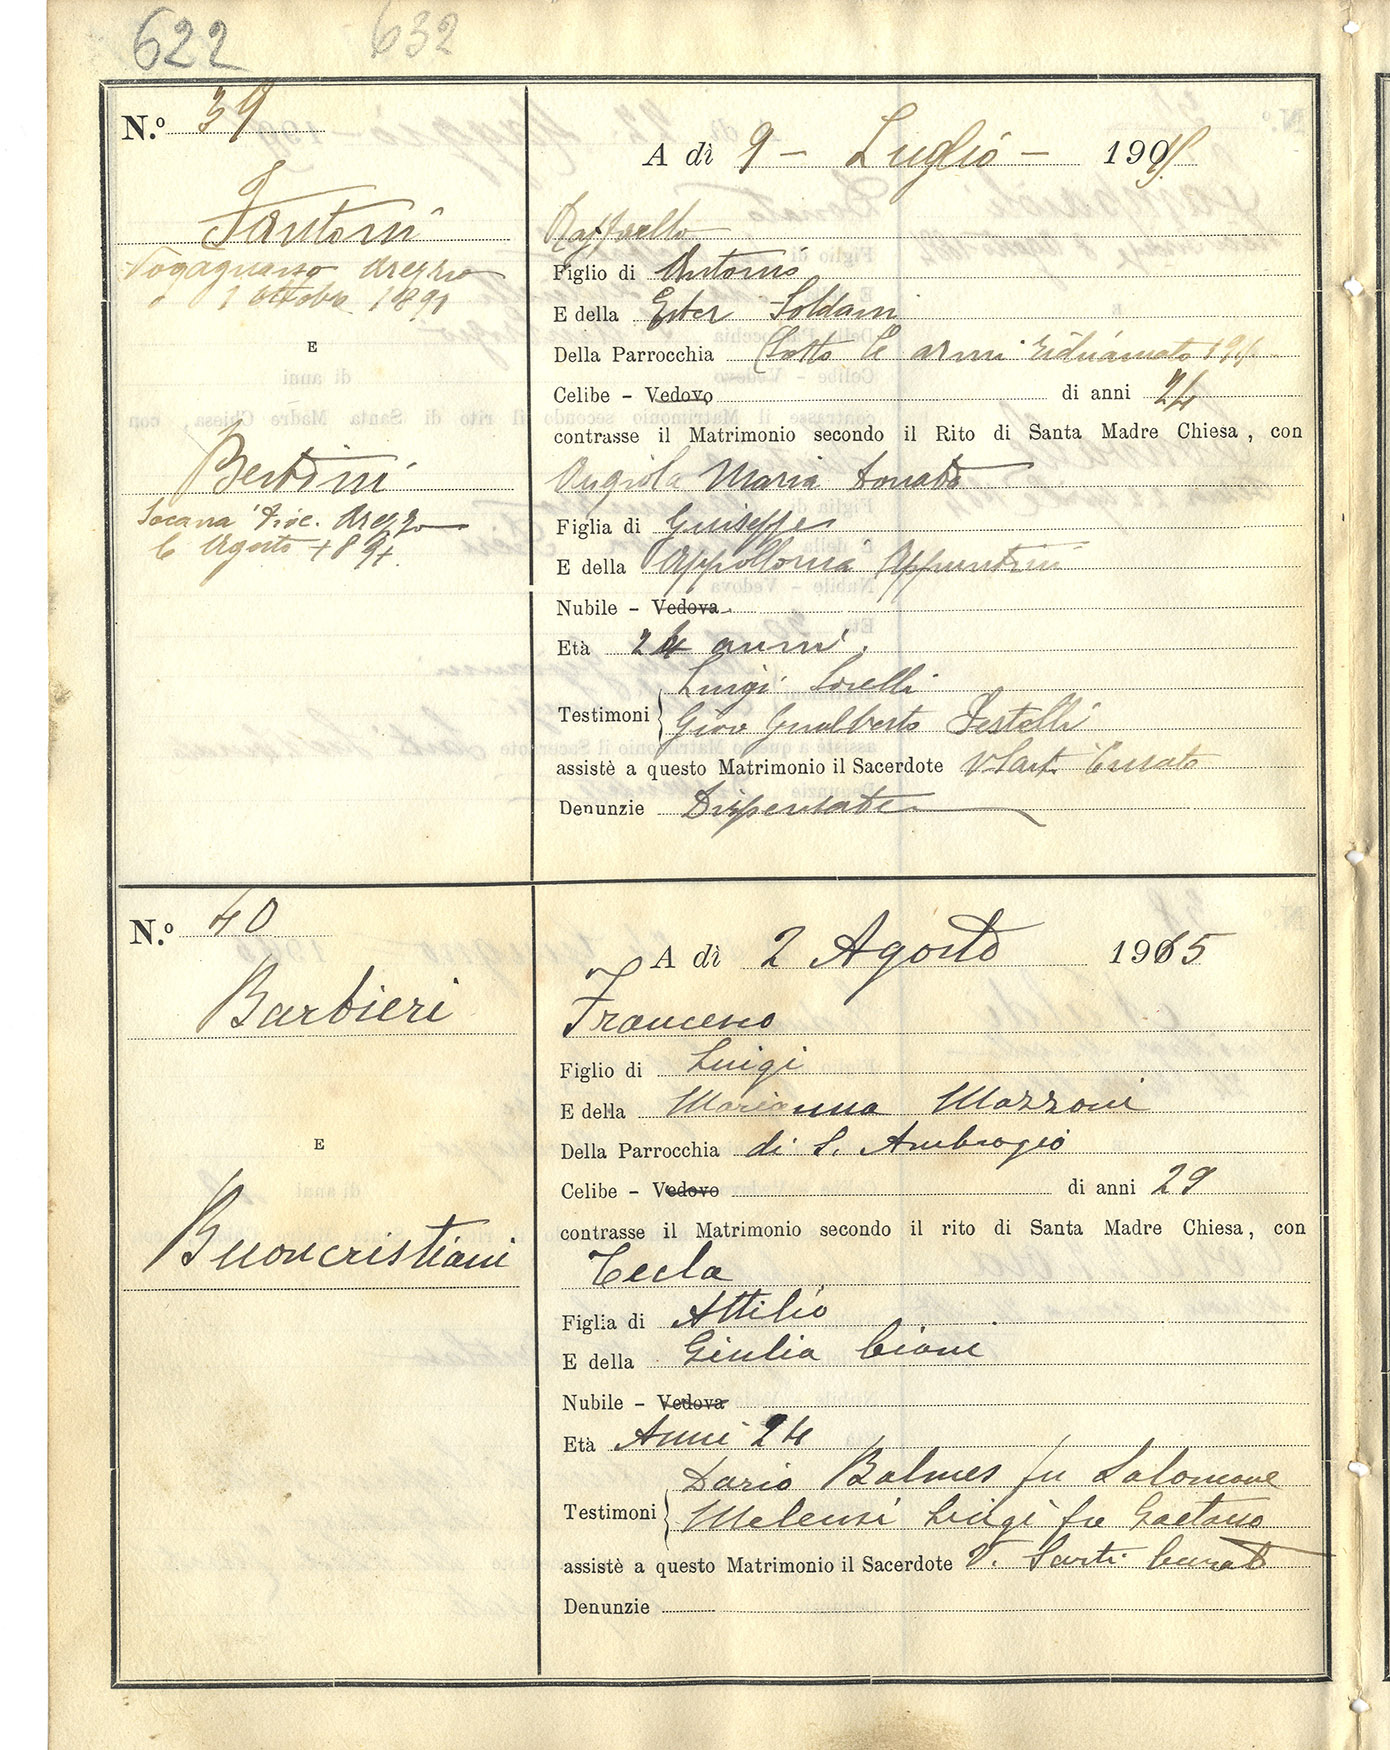 622 632
N.º 39
A dì 9 - Luglio - 1915
Fantoni
Raffaello
Arezzo
Figlio di Antonio
1 Ottobre 1891
E della Ester Soldani
E
Della Parrocchia (Sotto le armi richiamato
Celibe - Vedovo di anni 24
contrasse il Matrimonio secondo il Rito di Santa Madre Chiesa, con
Bertini
Angiola Maria Donata
Socana Prov. Arezzo
Figlia di Giuseppe
6 Agosto 1891
E della Appollonia Appuntini
Nubile - Vedova
Età 24 anni.
Luigi Sorelli
Testimoni
Giov Gualberto Testelli
assistè a questo Matrimonio il Sacerdote V Sarti Curato
Denunzie Dispensate
N.º 40
A dì 2 Agosto 1915
Barbieri
Francesco
Figlio di Luigi
E della Marianna Mazzoni
E
Della Parrocchia di S. Ambrogio
Celibe - Vedovo di anni 29
contrasse il Matrimonio secondo il rito di Santa Madre Chiesa, con
Buoncristiani
Tecla
Figlia di Attilio
E della Giulia Cioni
Nubile - Vedova
Età Anni 24
Dario Balmes fu Salomone
Testimoni
Melensi Luigi fu Gaetano
assistè a questo Matrimonio il Sacerdote V. Sarti Curato
Denunzie